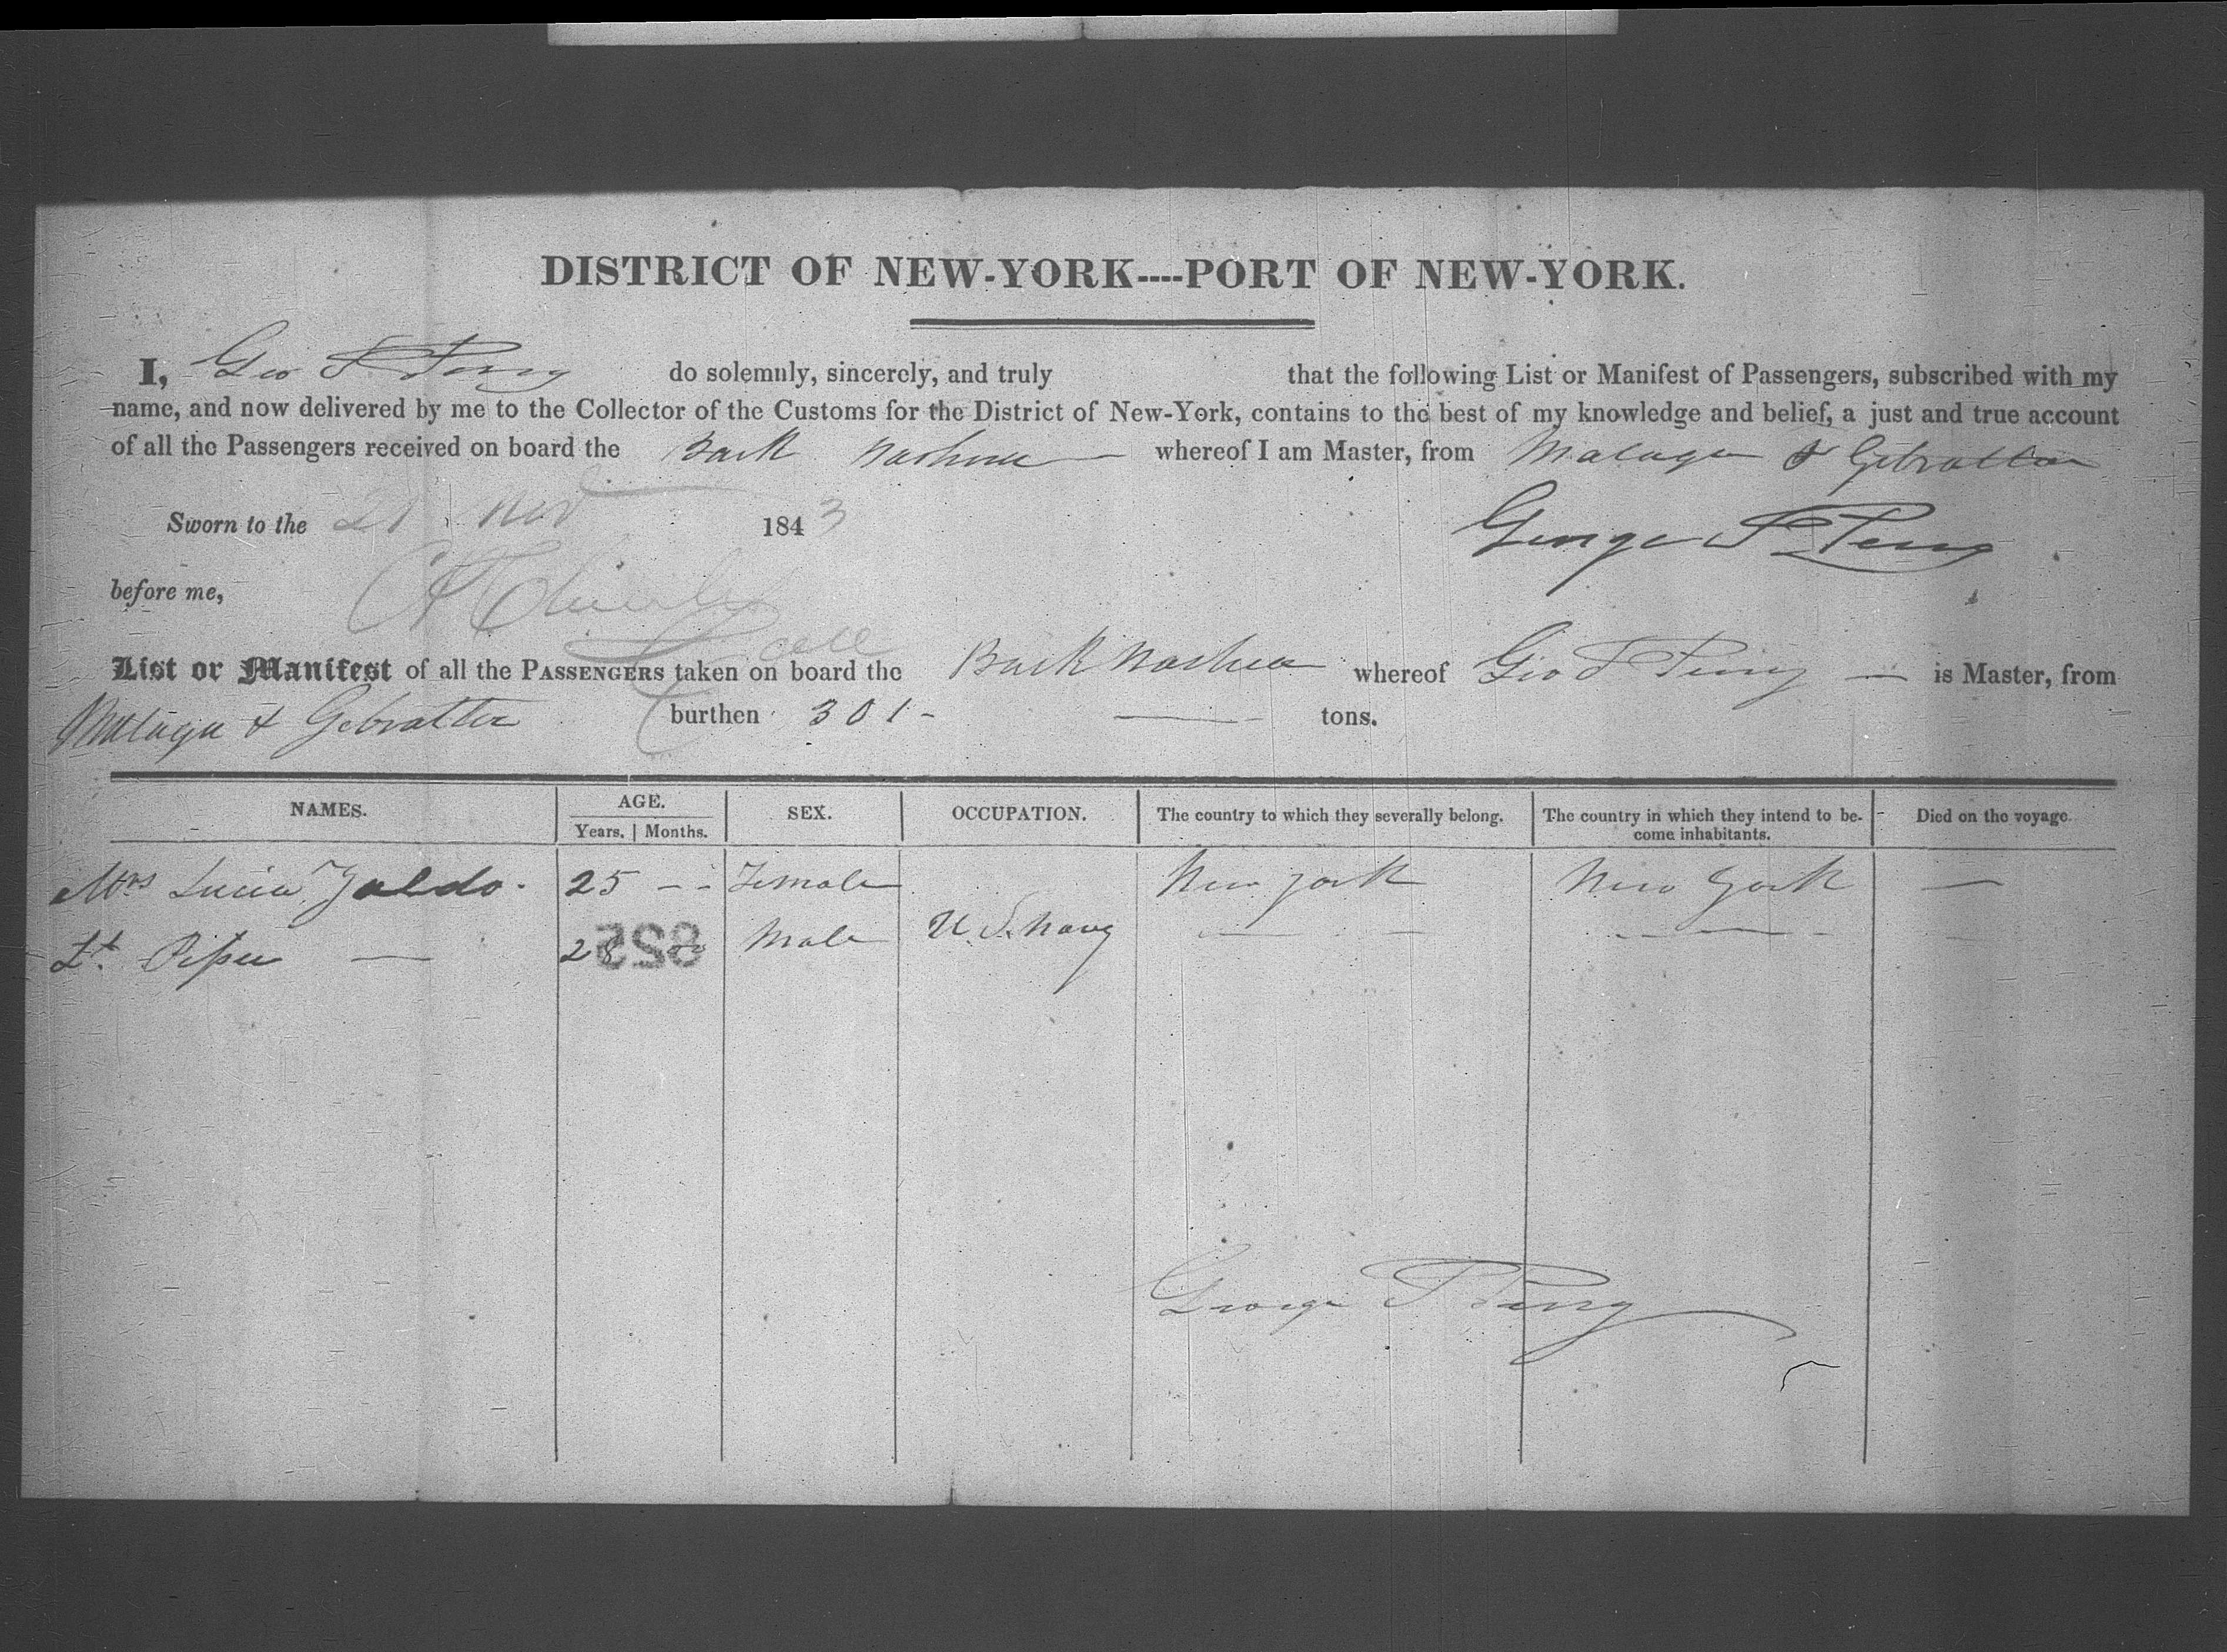 DISTRICT OF NEW-YORK----PORT OF NEW-YORK.
I, Geo T Perry do solemnly, sincerely, and truly that the following List or Manifest of Passengers, subscribed with my
name, and now delivered by me to the Collector of the Customs for the District of New-York, contains to the best of my knowledge and belief, a just and true account
of all the Passengers received on board the Bark Nashua whereof I am Master, from Malaga & Gibraltar
Sworn to the 21 Nov 1843
George T Perry
before me,
List or Manifest of all the PASSENGERS taken on board the Bark Nashua whereof Geo T Perry is Master, from
Malaga & Gebralter burthen 301 - tons.
NAMES. AGE. SEX. OCCUPATION. The country to which they severally belong. The country in which they intend to be- Died on the voyage.
Years. Months. come inhabitants.
Mrs Lucia 25 -- Female New york New York —
Lt. 28 Male U.S. Navy
825
George T Perry